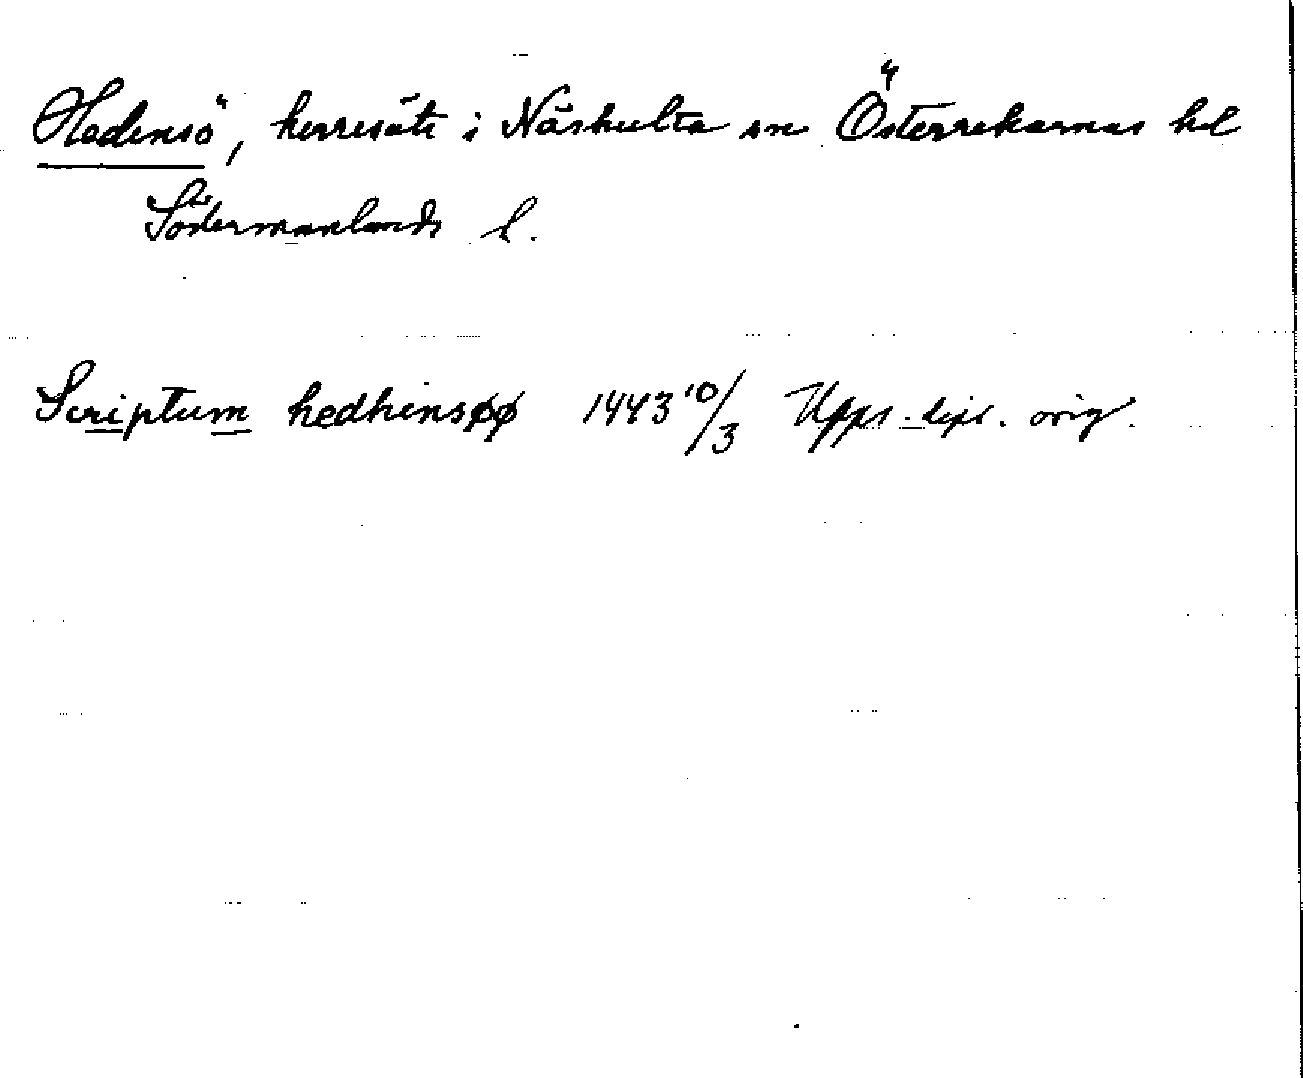 Hedensö, herresäte i Näshulta sn Österrekarnas hd
Södermanlands l.
Scriptum hedhensøø 1443 10/3 Upps. dipl. orig.